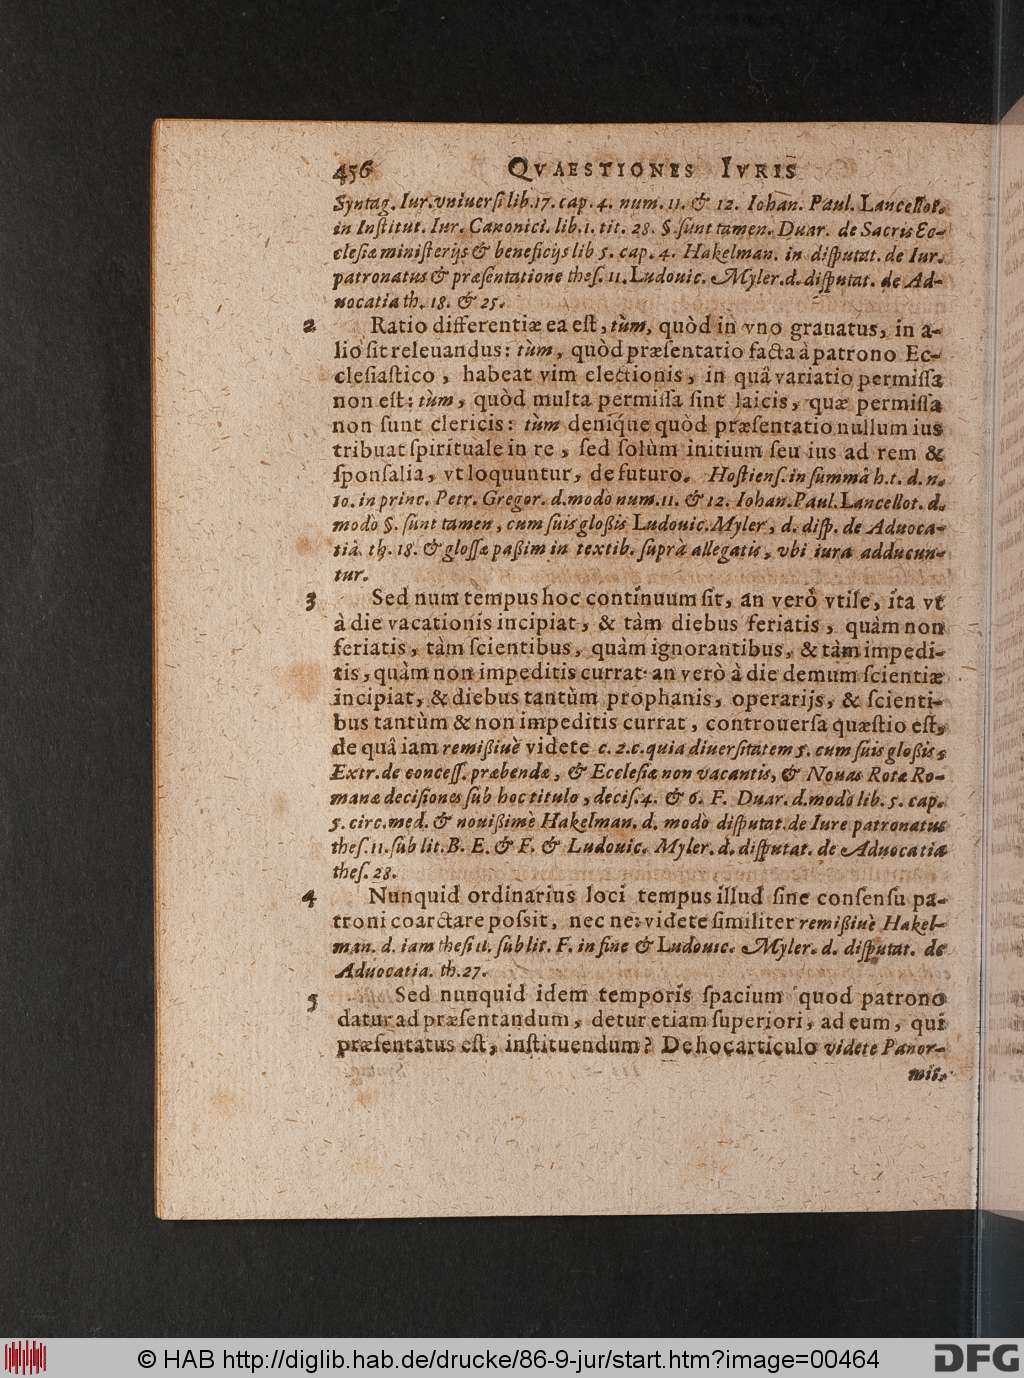 456 QVAESTIONES IVRIS
Syntag. Iur. vniuersi lib. 17. cap. 4. num. 11. & 12. Iohan. Paul. Lancellot.
in Institut. Iur. Canonici. lib. 1. tit. 28. §. sunt tamen. Duar. de Sacris Ec-
clesiæ ministerijs & beneficijs lib 5. cap. 4. Hakelman. in disputat. de Iur.
patronatus & præsentatione thes. 11. Ludouic. Myler. d. disputat. de Ad-
uocatia th. 18. & 25.
2 Ratio differentiæ ea est, tùm, quòd in vno grauatus, in a-
lio sit releuandus: tùm, quòd præsentatio facta à patrono Ec-
clesiastico, habeat vim electionis, in quâ variatio permissa
non est: tùm, quòd multa permissa sint laicis, quæ permissa
non sunt clericis: tùm denique quòd præsentatio nullum ius
tribuat spirituale in re, sed solùm initium seu ius ad rem &
sponsalia, vt loquuntur, de futuro. Hostiens. in summâ h. t. d. n.
10. in princ. Petr. Gregor. d. modo num. 11. & 12. Iohan. Paul. Lancellot. d.
modò §. sunt tamen, cum suis glossis Ludouic. Myler, d. disp. de Aduoca-
tiâ. th. 18. & glossæ passim in textib. suprà allegatis, vbi iura adducun-
tur.
3 Sed num tempus hoc continuum sit, an verò vtile, ita vt
à die vacationis incipiat, & tàm diebus feriatis, quàm non
feriatis, tàm scientibus, quàm ignorantibus, & tàm impedi-
tis, quàm non impeditis currat: an verò à die demum scientiæ
incipiat, & diebus tantùm prophanis, operarijs, & scienti-
bus tantùm & non impeditis currat, controuersa quæstio est,
de quâ iam remissiuè videte c. 2. c. quia diuersitatem 5. cum suis glossis,
Extr. de concess. præbendæ, & Ecclesiæ non vacantis, & Nouas Rotæ Ro-
manæ decisiones sub hoc titulo, decis. 4. & 6. F. Duar. d. modò lib. 5. cap.
5. circ. med. & nouissimè Hakelman. d. modò disputat. de Iure patronatus
thes. 11. sub lit. B. E. & F. & Ludouic. Myler. d. disputat. de Aduocatia
thes. 28.
4 Nunquid ordinarius loci tempus illud sine consensu pa-
troni coarctare possit, nec ne: videte similiter remissiuè Hakel-
man. d. iam thesi 11. sub lit. F. in fine & Ludouic. Myler. d. disputat. de
Aduocatia. th. 27.
5 Sed nunquid idem temporis spacium quod patrono
datur ad præsentandum, detur etiam superiori, ad eum, qui
præsentatus est, instituendum? De hoc articulo videte Panor-
mit.
© HAB http://diglib.hab.de/drucke/86-9-jur/start.htm?image=00464
DFG